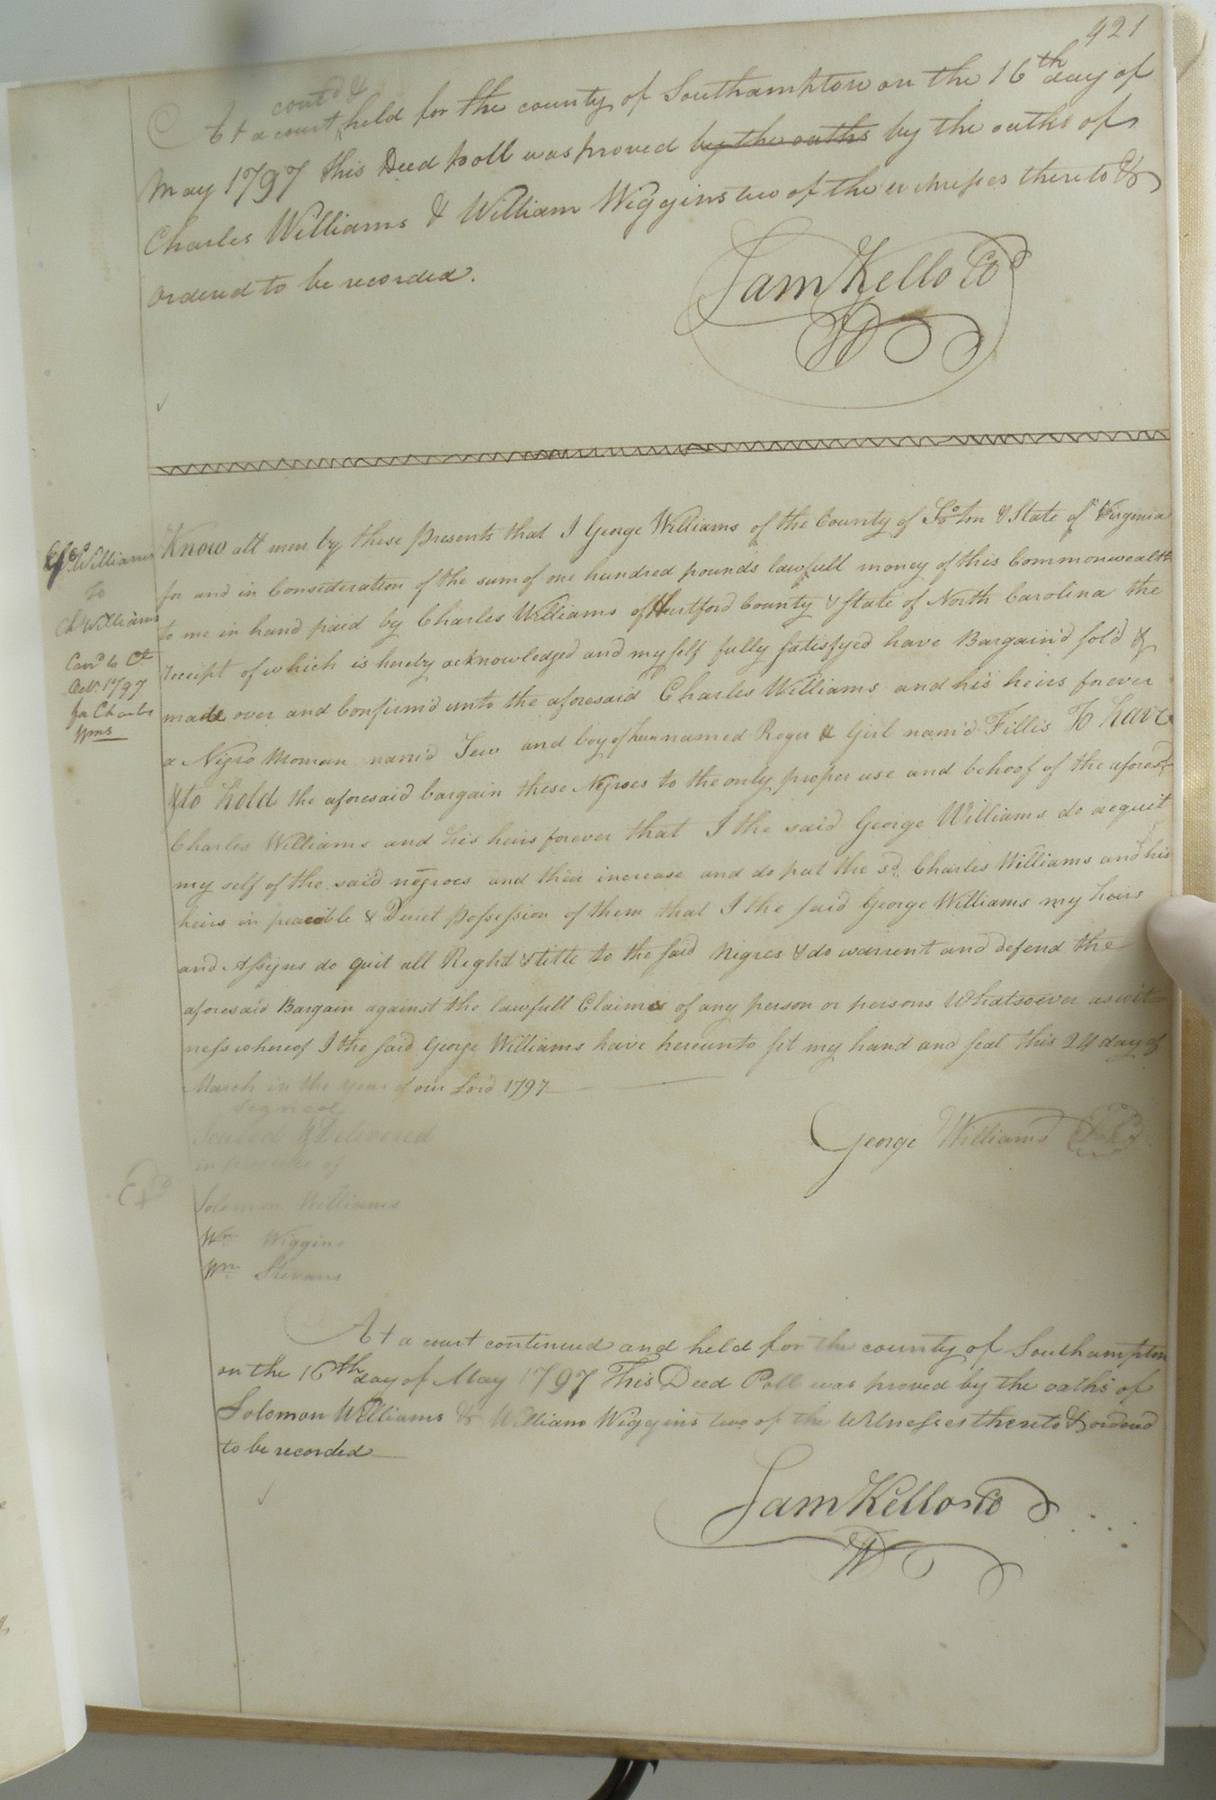 421
contd &
At a court held for the county of Southampton on the 16th day of
May 1797 this Deed poll was proved by the oaths by the oaths of
Charles Williams & William Wiggins two of the witnesses thereto &
ordered to be recorded.
Sam Kello CC
Know all men by these Presents that I George Williams of the County of So.ton & State of Virginia
for and in Consideration of the sum of one hundred pounds lawfull money of this Commonwealth
to me in hand paid by Charles Williams of Hertford County & State of North Carolina the
receipt of which is hereby acknowledged and my self fully satisfyed have Bargain'd sold &
made over and Confirm'd unto the aforesaid Charles Williams and his heirs forever
a Nigro Woman nam'd and boy of hur named Roger & Girl nam'd Fillis To have
& to hold the aforesaid bargain these Negroes to the only proper use and behoof of the aforesd
Charles Williams and his heirs forever that I the said George Williams do acquit
my self of the said negroes and their increase and do put the sd. Charles Williams and his
heirs in peacable & Quiet Possession of them that I the said George Williams my heirs
and Assigns do quit all Right & title to the said Nigres & do warrent and defend the
aforesaid Bargain against the lawfull Claims of any person or persons Whatsoever as wit
ness whereof I the said George Williams have hereunto set my hand and seal this 24 day of
March in the year of our Lord 1797
Signed
Sealed & Delivered
in presence of
George Williams
Solomon Williams
Wm Wiggins
Wm Stevans
Williams
to
Ch Williams
Oct. 1797
for Charles
Wms
Exd
At a court continued and held for the county of Southampton
on the 16th day of May 1797 This Deed Poll was proved by the oaths of
Solomon Williams & William Wiggins two of the Witnesses thereto & ordered
to be recorded
Sam Kello CC